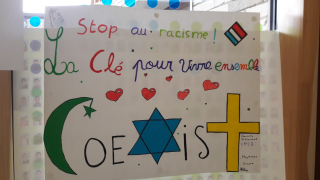 Stop au racisme!
La Clé pour vivre ensemble
COEXIST